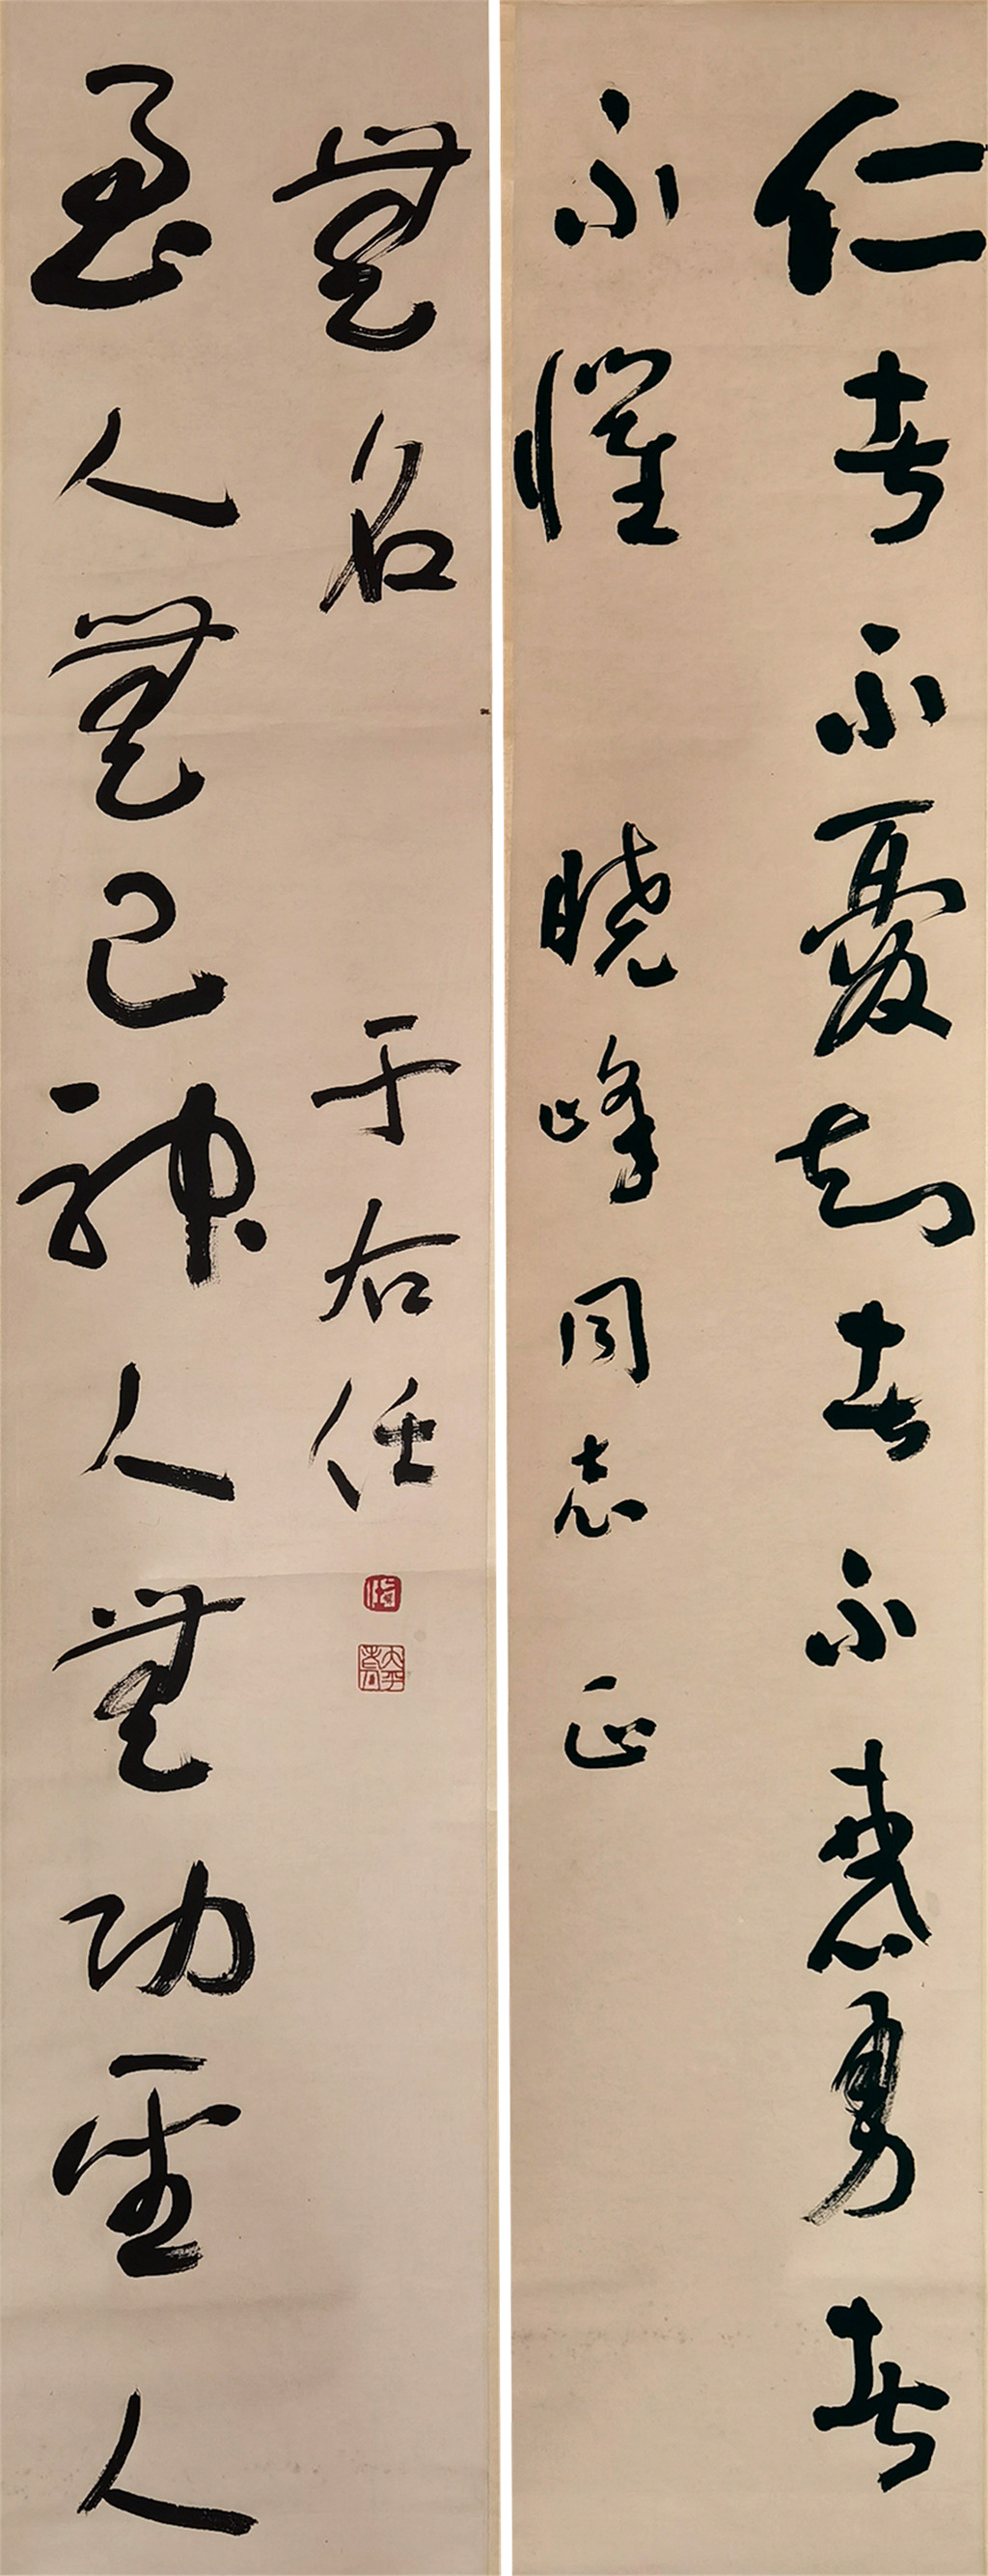 仁者不憂知者不惑勇者
不懼 曉峰同志 正
至人無己神人無功聖人
無名 于右任
太平老人